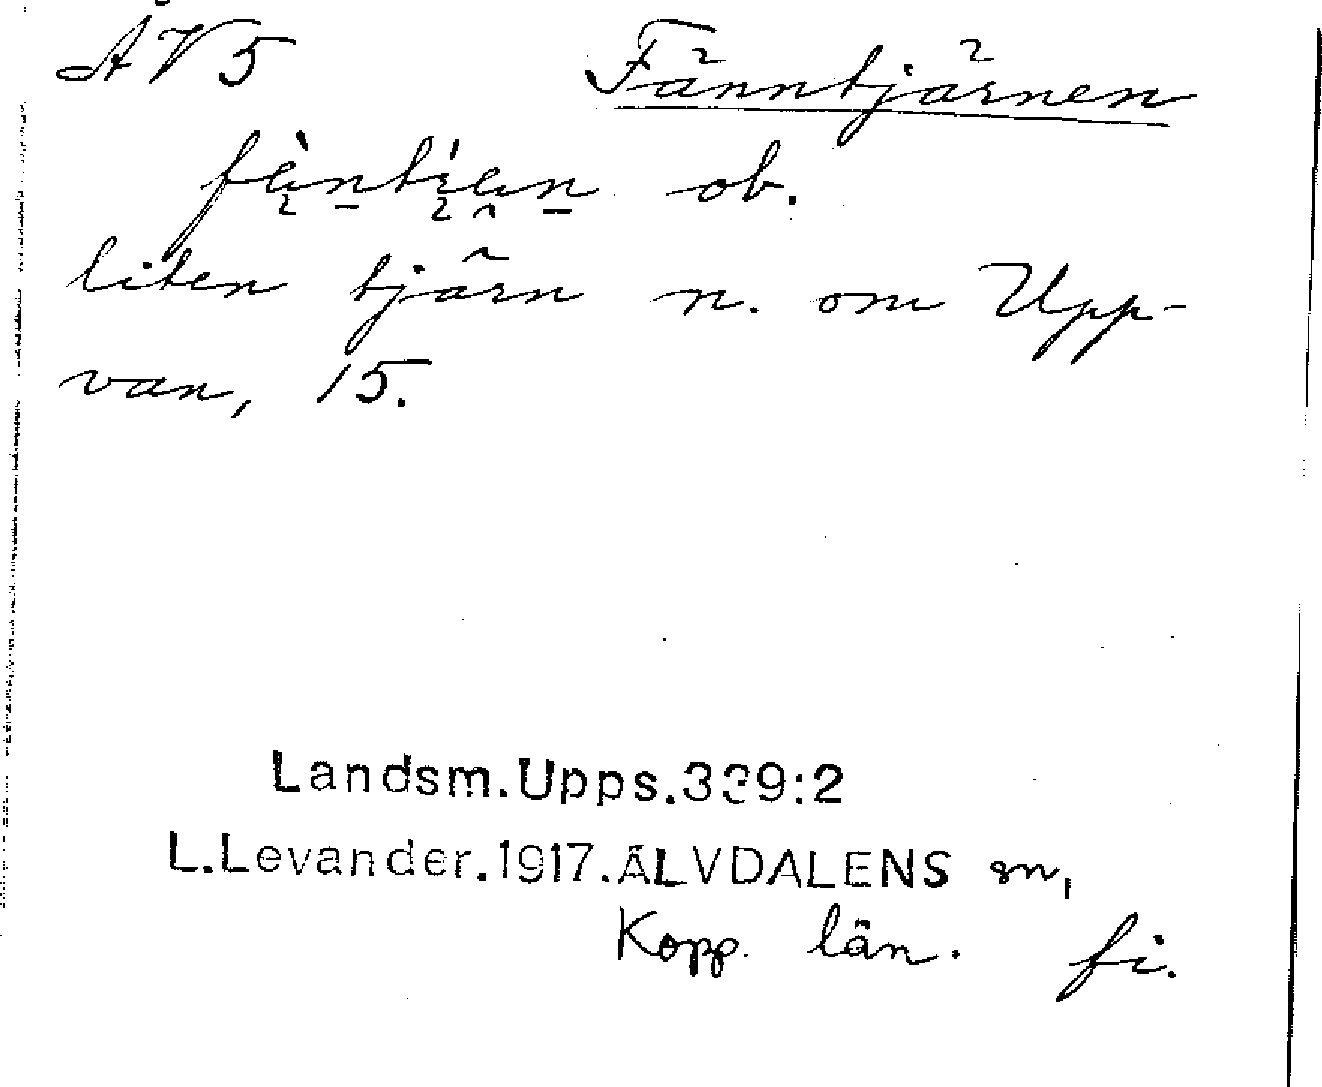 ÅV5 Fänntjärnen
ob.
liten tjärn n. om Upp-
van, 15.
Landsm.Upps.339:2
L.Levander.1917.ÄLVDALENS sn,
Kopp. län. fi.